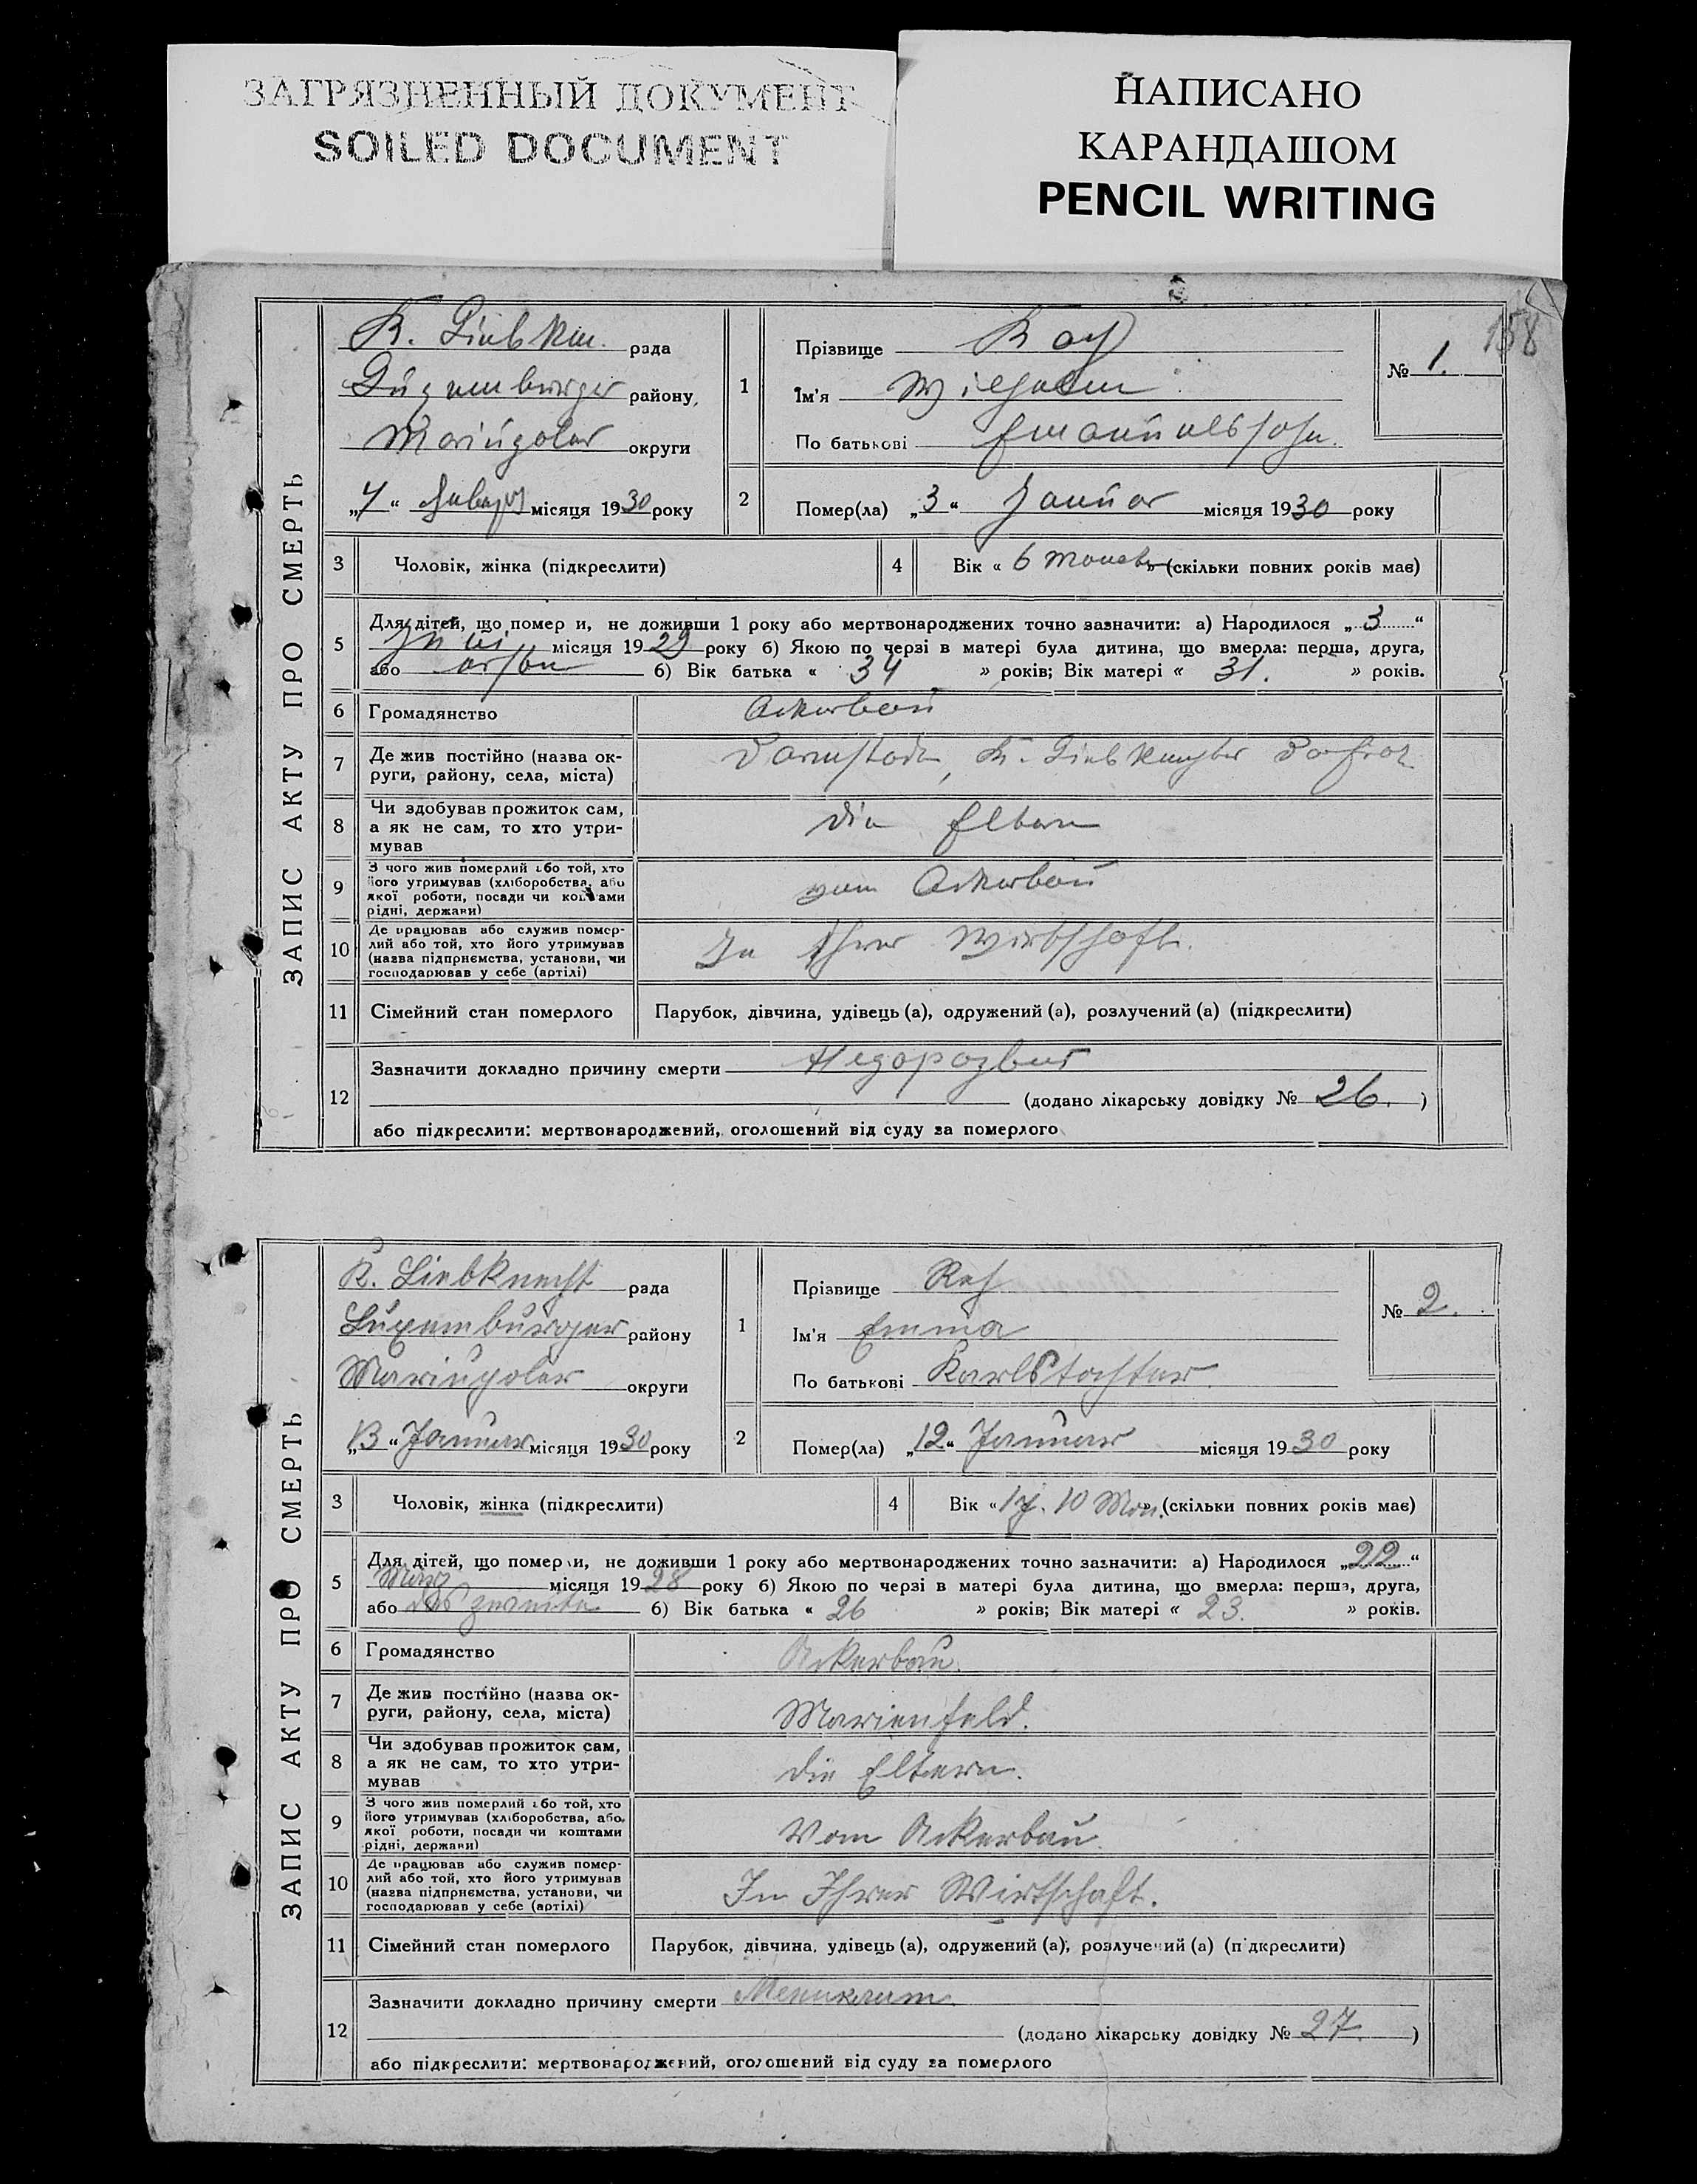 ЗАГРЯЗНЕННЫЙ ДОКУМЕНТ
SOILED DOCUMENT
НАПИСАНО
КАРАНДАШОМ
PENCIL WRITING
158
ЗАПИС АКТУ ПРО СМЕРТЬ
K. Liebkn. рада
Luxemburger району,
Mariupoler округи
„7“ місяця 1930 року
1
Прізвище
Ім'я Wilhelm
По батькові Emanuelssohn
№ 1.
2
Помер(ла) „3“ Januar місяця 1930 року
3 Чоловік, жінка (підкреслити)
4 Вік « 6 Monat » (скільки повних років має)
5 Для дітей, що помер и, не доживши 1 року або мертвонароджених точно зазначити: а) Народилося „3“
Juli місяця 1929 року б) Якою по черзі в матері була дитина, що вмерла: перша, друга,
або б) Вік батька « 34 » років; Вік матері « 31. » років.
6 Громадянство Ackerbau
7 Де жив постійно (назва ок-
руги, району, села, міста) Darmstadt, K.
8 Чи здобував прожиток сам,
а як не сам, то хто утри-
мував die Eltern
9 З чого жив померлий або той, хто
його утримував (хліборобства, або
якої роботи, посади чи коштами
рідні, держави) vom Ackerbau
10 Де працював або служив помер-
лий або той, хто його утримував
(назва підприємства, установи, чи
господарював у себе (артілі) In Ihrer Wirtschaft.
11 Сімейний стан померлого Парубок, дівчина, удівець (а), одружений (а), розлучений (а) (підкреслити)
12 Зазначити докладно причину смерти
(додано лікарську довідку № 26. )
або підкреслити: мертвонароджений, оголошений від суду за померлого
ЗАПИС АКТУ ПРО СМЕРТЬ
K. Liebknecht рада
Luxemburger району
Mariupoler округи
„13“ Januar місяця 1930 року
1
Прізвище Reh
Ім'я Emma
По батькові Karlstochter
№ 2.
2
Помер(ла) „12“ Januar місяця 1930 року
3 Чоловік, жінка (підкреслити)
4 Вік « 1 J. 10 Mon. » (скільки повних років має)
5 Для дітей, що померли, не доживши 1 року або мертвонароджених точно зазначити: а) Народилося „22“
März місяця 1928 року б) Якою по черзі в матері була дитина, що вмерла: перша, друга,
або das zweite б) Вік батька « 26 » років; Вік матері « 23. » років.
6 Громадянство Ackerbau.
7 Де жив постійно (назва ок-
руги, району, села, міста) Marienfeld.
8 Чи здобував прожиток сам,
а як не сам, то хто утри-
мував die Eltern.
9 З чого жив померлий або той, хто
його утримував (хліборобства, або
якої роботи, посади чи коштами
рідні, держави) Vom Ackerbau.
10 Де працював або служив помер-
лий або той, хто його утримував
(назва підприємства, установи, чи
господарював у себе (артілі) In Ihrer Wirtschaft.
11 Сімейний стан померлого Парубок, дівчина, удівець (а), одружений (а), розлучений (а) (підкреслити)
12 Зазначити докладно причину смерти
(додано лікарську довідку № 27. )
або підкреслити: мертвонароджений, оголошений від суду за померлого